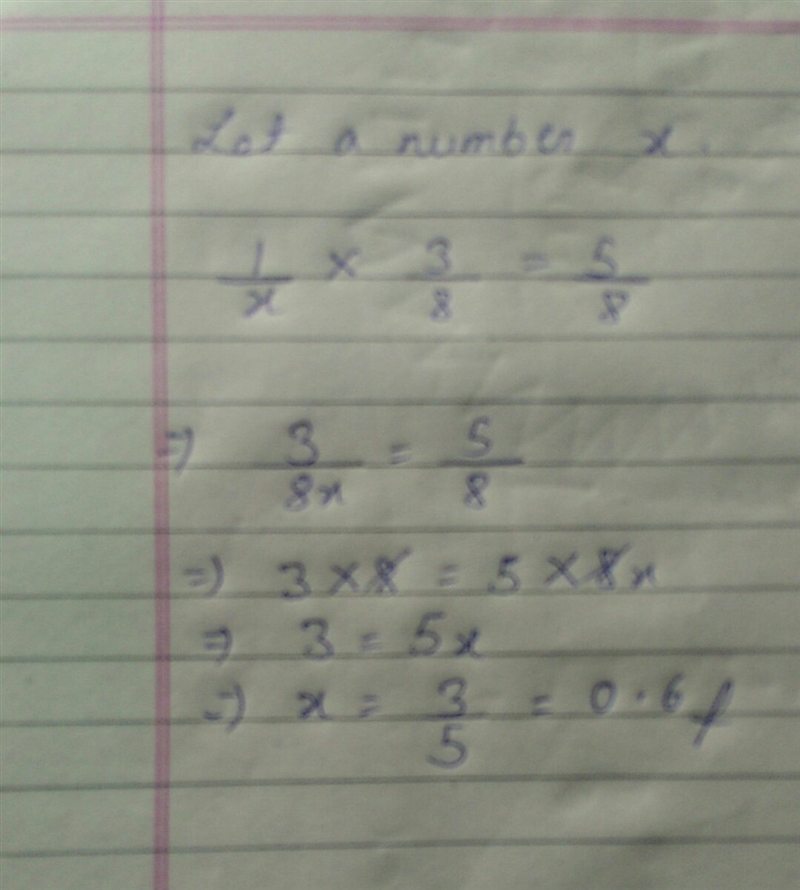 Let a number x.
1/x × 3/8 = 5/8
⇒ 3/8x = 5/8
⇒ 3 × 8 = 5 × 8x
⇒ 3 = 5x
⇒ x = 3/5 = 0.6